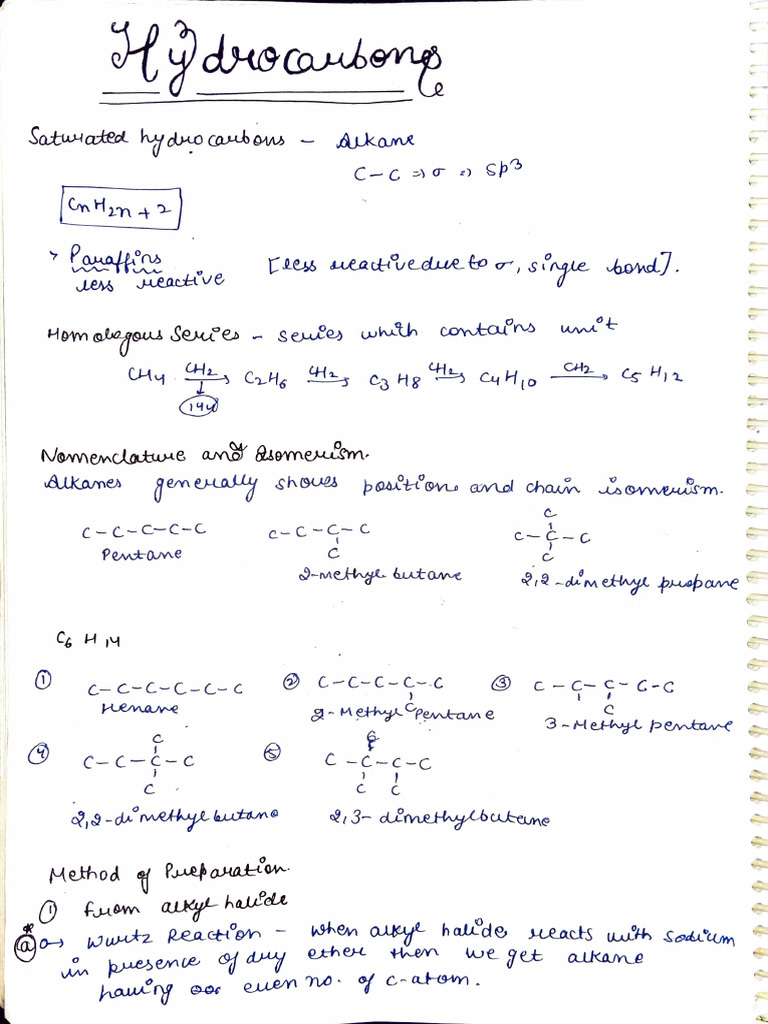 Hydrocarbons
Saturated hydrocarbons - Alkane
C-C => σ => sp3
CnH2n+2
> Paraffins [less reactive due to σ, single bond].
less reactive
Homologous Series - series whith contains unit
CH4 CH2→ C2H6 CH2→ C3H8 CH2→ C4H10 CH2→ C5H12
↓
14u
Nomenclature and Isomerism.
Alkanes generally shows position and chain isomerism.
C
C-C-C-C-C C-C-C-C C-C-C
Pentane C C
2-methyl butane 2,2-dimethyl propane
C6H14
① C-C-C-C-C-C ② C-C-C-C-C ③ C-C-C-C-C
Hexane C C
2-Methyl Pentane 3-Methyl pentane
C
④ C-C-C-C ⑤ C-C-C-C
C C C
2,2-dimethyl butane 2,3-dimethylbutane
Method of Preparation.
① From alkyl halide
*
ⓐ → Wurtz Reaction - When alkyl halide reacts with Sodium
in presence of dry ether then we get alkane
having even no. of c-atom.